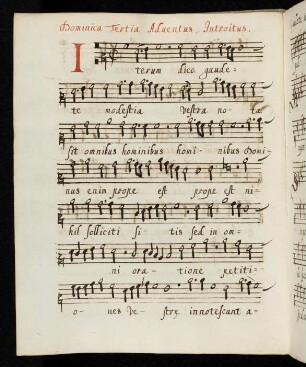 Dominica Tertia Aduentus, Introitus.
Iterum dico gaude-
te modestia vestra nota
sit omnibus hominibus homi- nibus Domi-
nus enim prope est prope est ni-
hil solliciti si- tis sed in om-
ni ora- tione petiti-
o- nes ve- strę innotescant a-